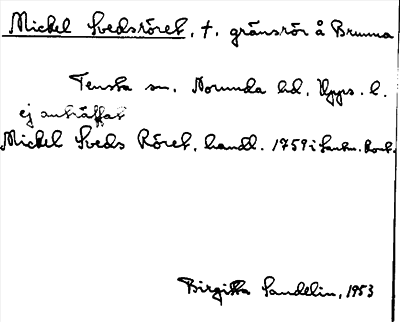 Mickel Svedsröret, t. gränsrör å Brunna
Tensta sn. Norunda hd. Upps. l.
ej anträffat
Mickel Sveds Röret, handl. 1759 i Lantm. kont.
Birgitta Sandelin, 1953